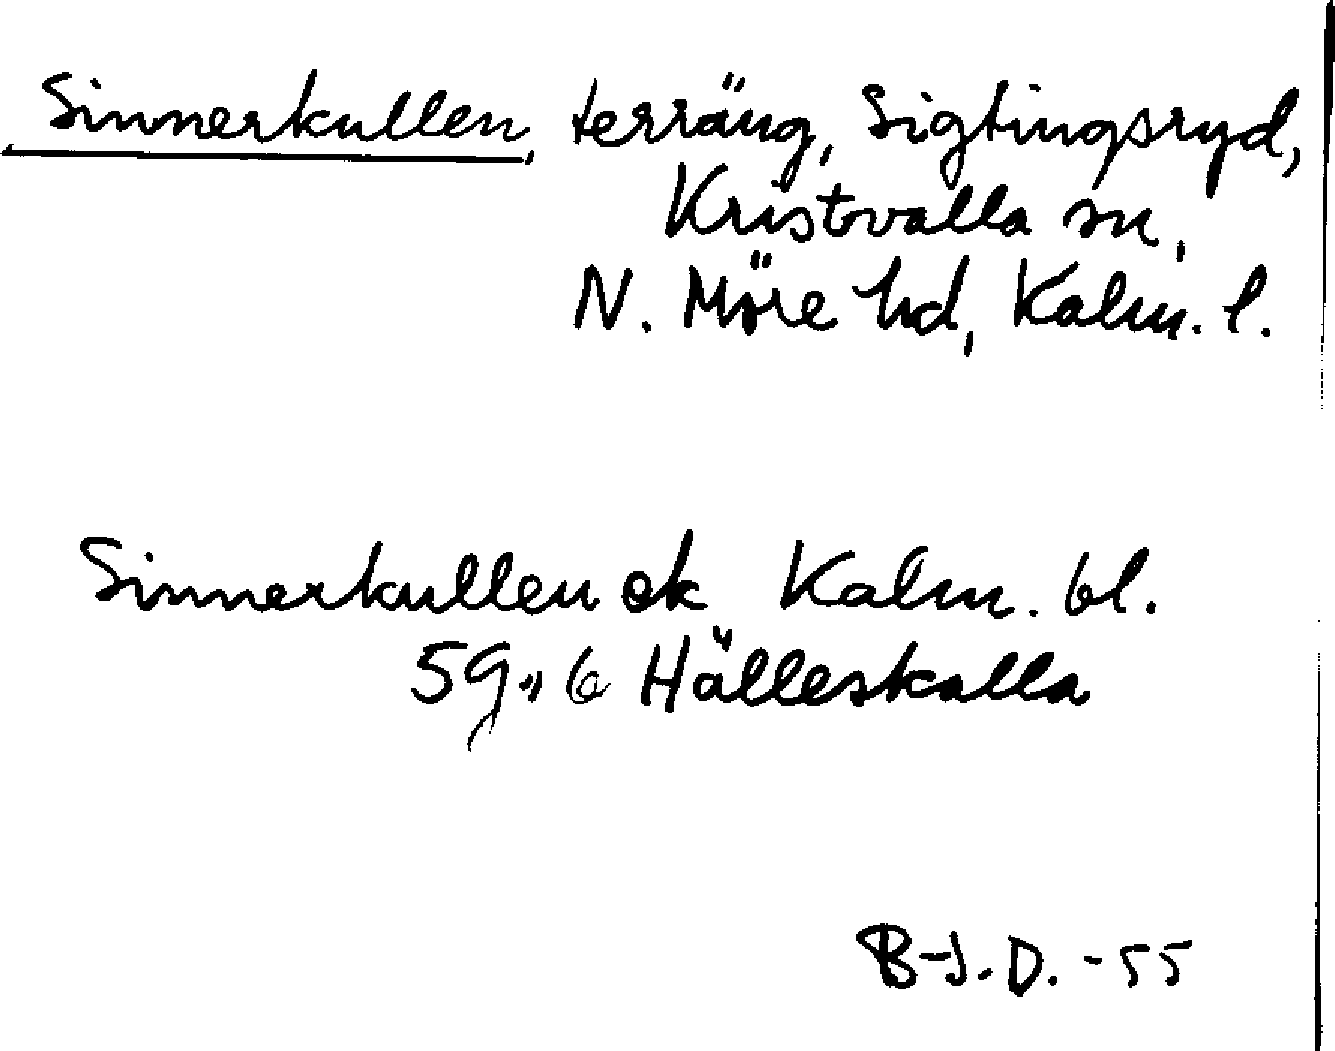 Sinnerkullen, terräng, Sigtingsryd,
Kristvalla sn,
N. Möre hd, Kalm. l.
Sinnerkullen ek Kalm. bl.
59, 6 Hälleskalla
B-J. D. -55